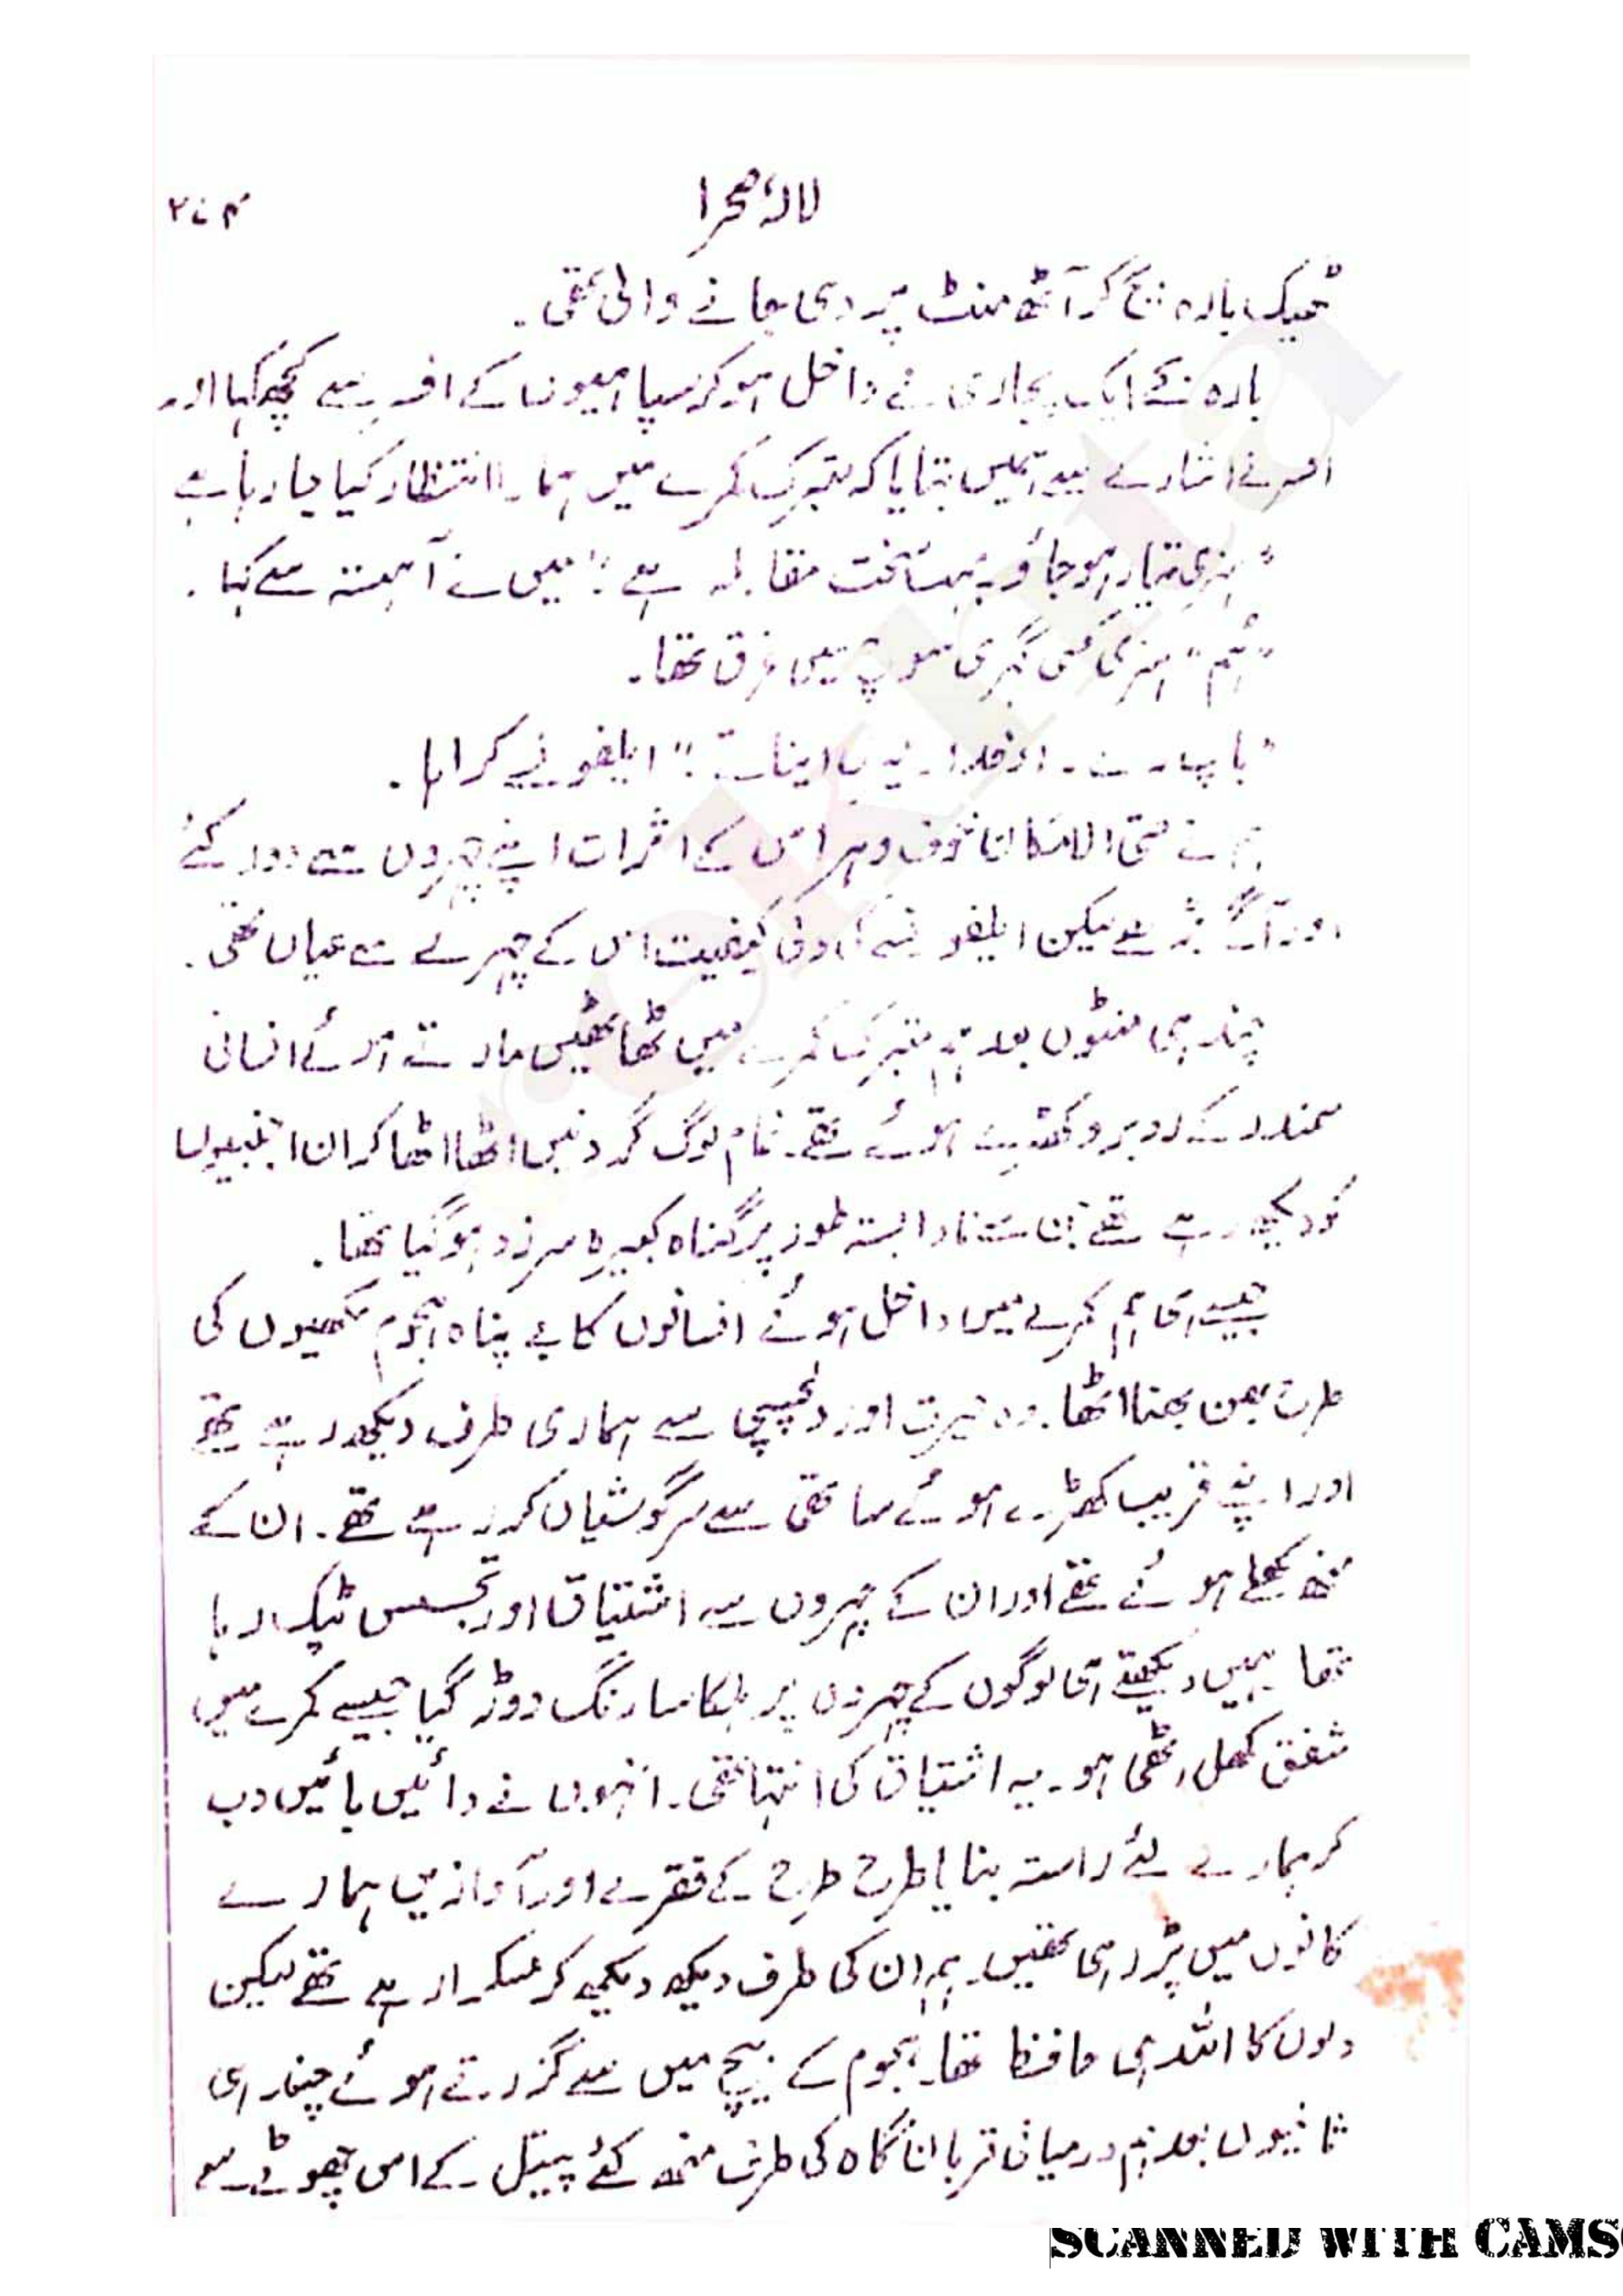 لالۂ صحرا
۲۷۴
ٹھیک بارہ بج کر آٹھ منٹ پر دی جانے والی تھی۔
بارہ بجے ایک پجاری نے داخل ہو کر سپاہیوں کے افسر سے کچھ کہا اور
افسر نے اشارے سے ہمیں بتایا کہ متبرک کمرے میں ہمارا انتظار کیا جا رہا ہے
"ہنری تیار ہو جاؤ۔ بہت سخت مقابلہ ہے۔" میں نے آہستہ سے کہا۔
"ہُم" ہنری کسی گہری سوچ میں غرق تھا۔
"باپ رے۔ او خدا۔ یہ اینا۔" ایلفونے کراہا۔
ہم نے حتی الامکان خوف و ہراس کے اثرات اپنے چہروں سے دور کئے
اور آگے بڑھے لیکن ایلفونسے کی کیفیت اس کے چہرے سے عیاں تھی۔
چند ہی منٹوں بعد ہم متبرک کمرے میں ٹھاٹھیں مارتے ہوئے انسانی
سمندر کے روبرو کھڑے ہوئے تھے۔ تمام لوگ گردنیں اٹھا اٹھا کر ان اجنبیوں
کو دیکھ رہے تھے جن سے نادانستہ طور پر گناہ کبیرہ سرزد ہو گیا تھا۔
جیسے ہی ہم کمرے میں داخل ہوئے انسانوں کا بے پناہ ہجوم مکھیوں کی
طرح بھن بھنا اٹھا۔ وہ حیرت اور دلچسپی سے ہماری طرف دیکھ رہے تھے
اور اپنے قریب کھڑے ہوئے ساتھی سے سرگوشیاں کر رہے تھے۔ ان کے
منھ کھلے ہوئے تھے اور ان کے چہروں سے اشتیاق اور تجسس ٹپک رہا
تھا ہمیں دیکھتے ہی لوگوں کے چہروں پر ہلکا سا رنگ دوڑ گیا جیسے کمرے میں
شفق کھل اٹھی ہو۔ یہ اشتیاق کی انتہا تھی۔ انہوں نے دائیں بائیں دب
کر ہمارے لئے راستہ بنایا طرح طرح کے فقرے اور آوازیں ہمارے
کانوں میں پڑ رہی تھیں۔ ہم ان کی طرف دیکھ دیکھ کر مسکرا رہے تھے لیکن
دلوں کا اللہ ہی حافظ تھا۔ ہجوم کے بیچ میں سے گزرتے ہوئے چند ہی
ثانیوں بعد ہم درمیانی قربان گاہ کی طرف منھ کئے پیتل کے اس چھوٹے سے
SCANNED WITH CAMS